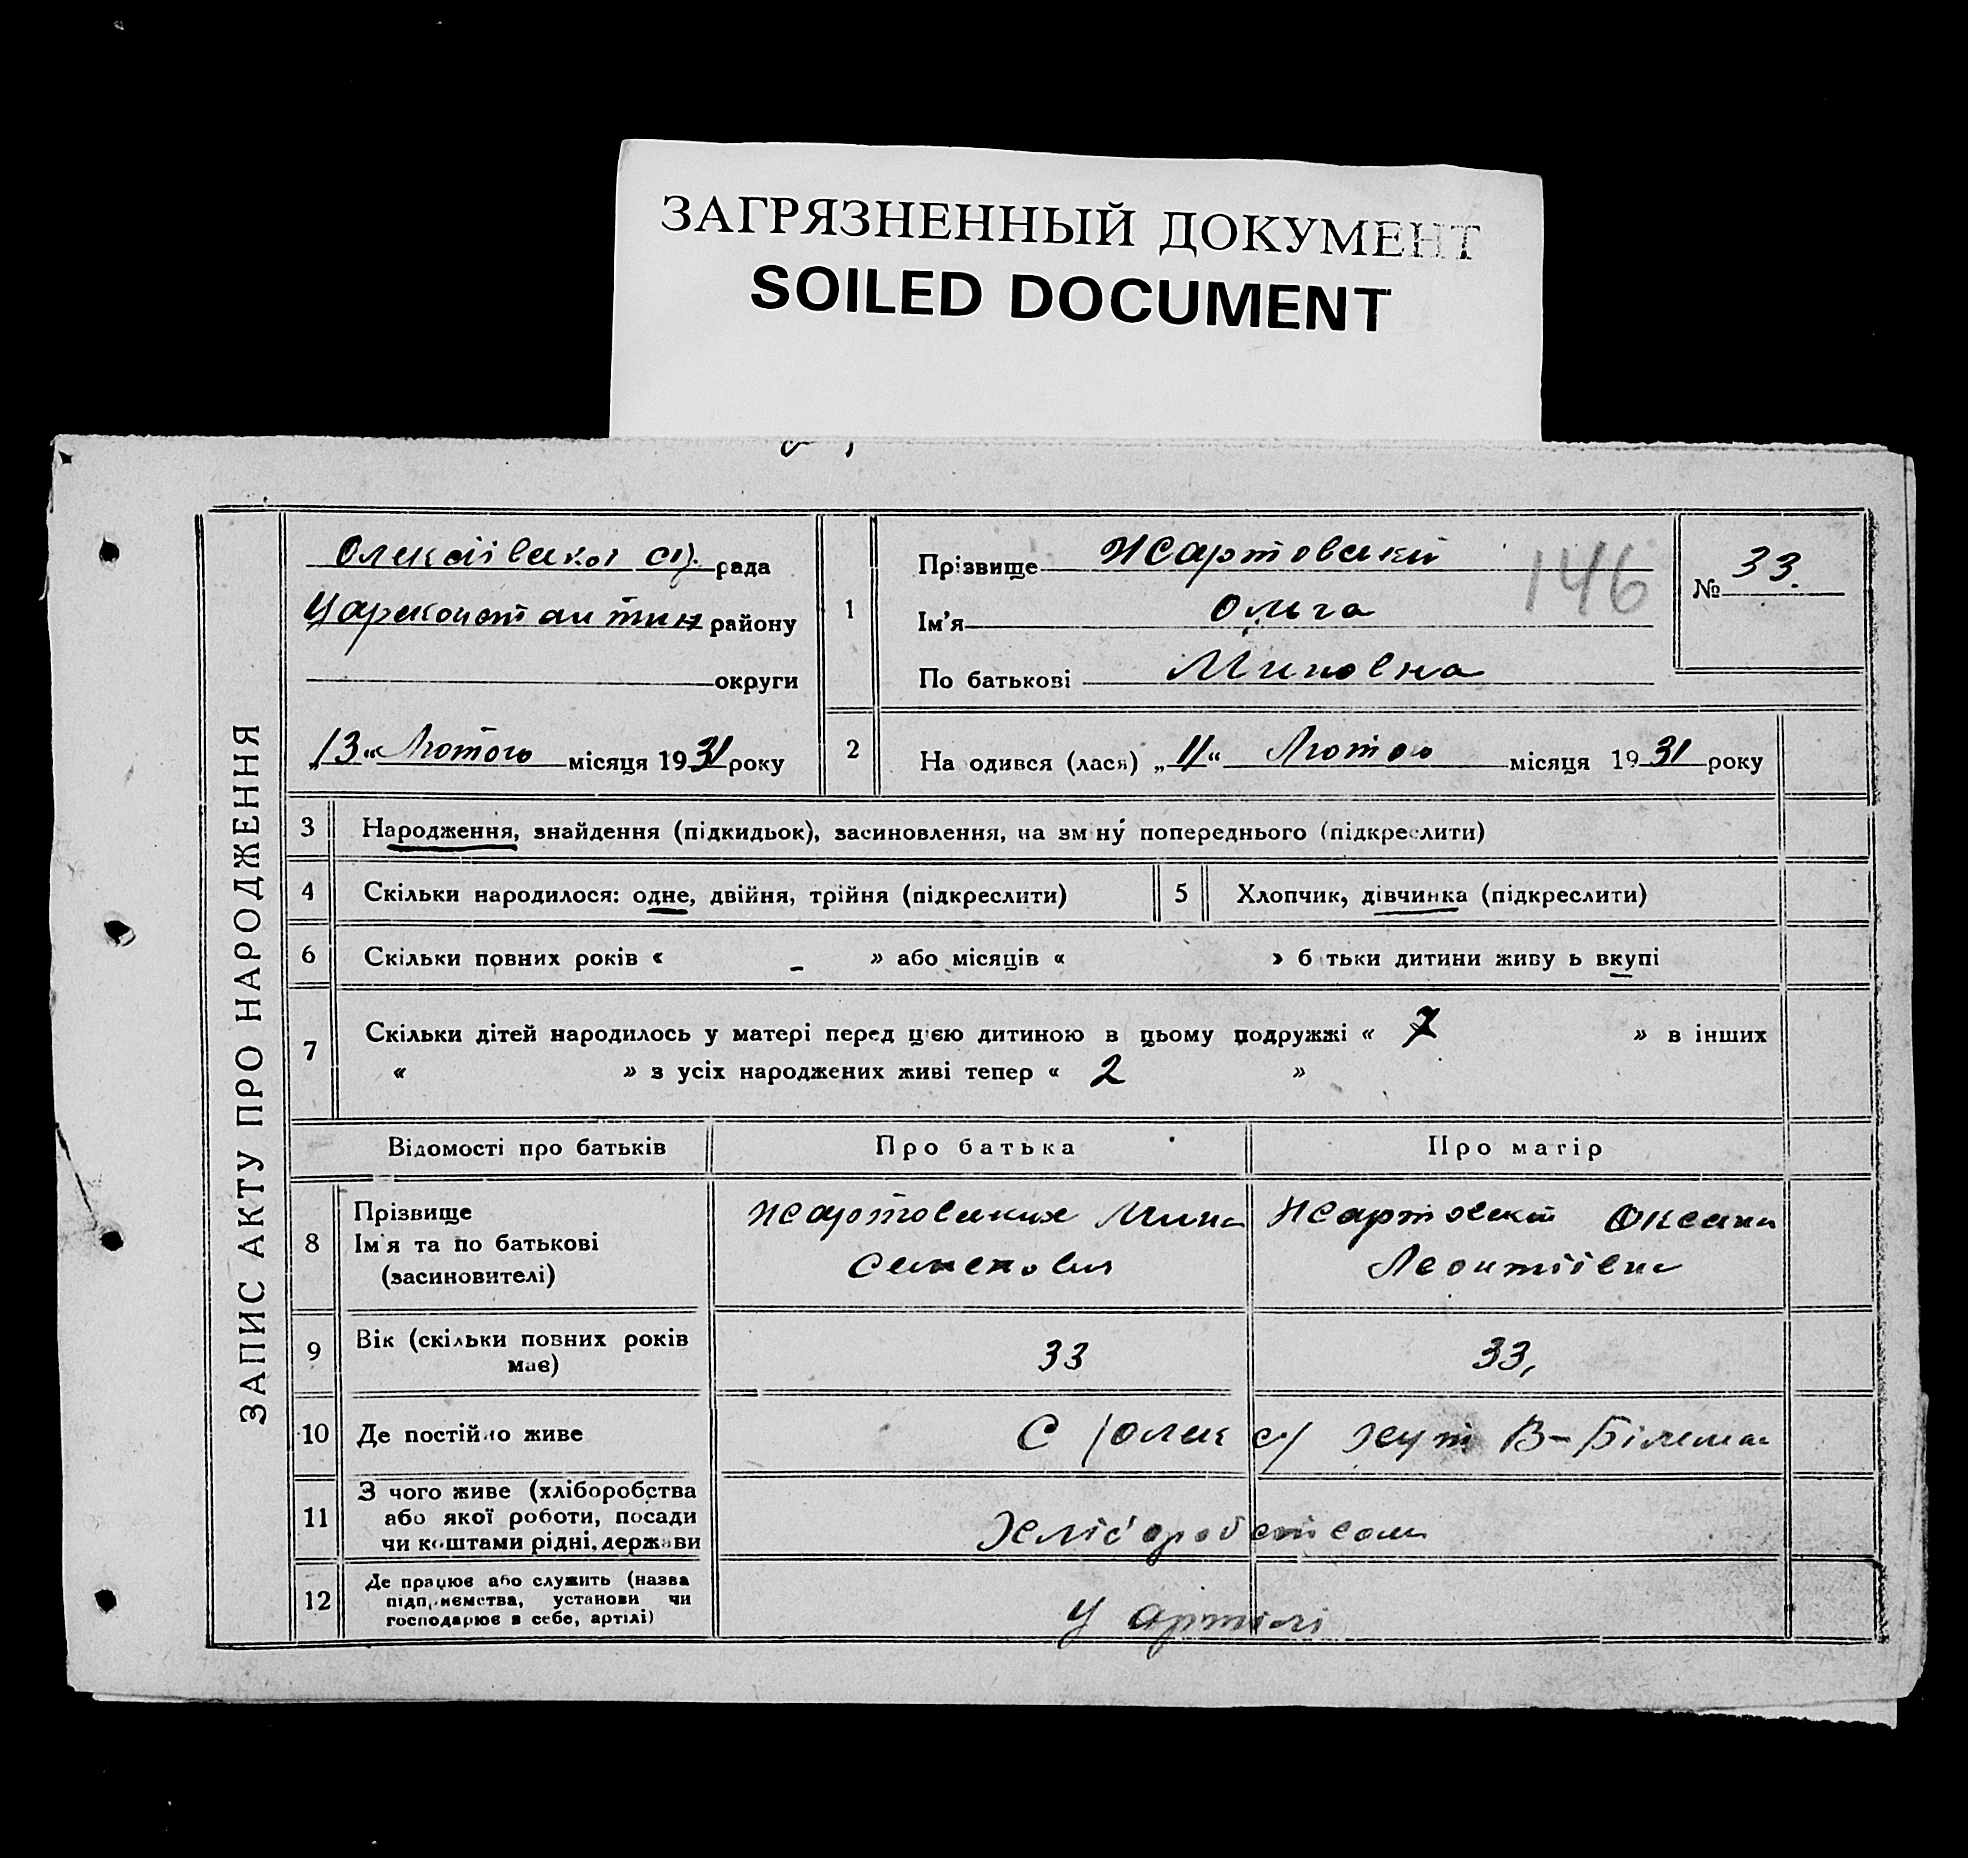 ЗАГРЯЗНЕННЫЙ ДОКУМЕНТ
SOILED DOCUMENT
ЗАПИС АКТУ ПРО НАРОДЖЕННЯ
Олексіївської с/р. рада
Цареконстантин району
округи
„13“ Лютого місяця 1931 року
1
Прізвище Жартовський
146
Ім'я Ольга
По батькові Миновна
№ 33.
2
На одився (лася) „11“ Лютого місяця 1931 року
3 Народження, знайдення (підкидьок), засиновлення, на зм ну попереднього (підкреслити)
4 Скільки народилося: одне, двійня, трійня (підкреслити)
5 Хлопчик, дівчинка (підкреслити)
6 Скільки повних років « - » або місяців « » б тьки дитини живу ь вкупі
7 Скільки дітей народилось у матері перед ц'єю дитиною в цьому подружжі « 7 » в інших
« » з усіх народжених живі тепер « 2 »
Відомості про батьків
Про батька
Про матір
8 Прізвище
Ім'я та по батькові
(засиновителі)
Жартовських Мина
Семенович
Жартовські Оксана
Леонтіївна
9 Вік (скільки повних років
має)
33
33,
10 Де постійно живе
С /олек с/ хут В-Білма
11 З чого живе (хліборобства
або якої роботи, посади
чи коштами рідні, держави
Хліборобством
12 Де працює або служить (назва
підприємства, установи чи
господарює в себе, артілі)
У артілі